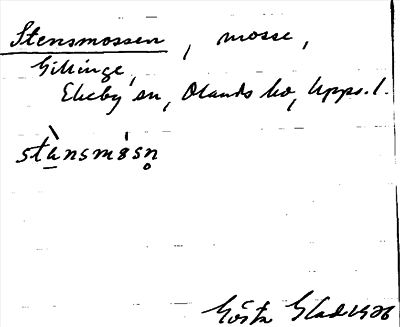 Stensmossen, mosse,
Gillinge,
Ekeby sn, Olands hd, Upps. l.
stànsmósn̥
Gösta Glad 1926